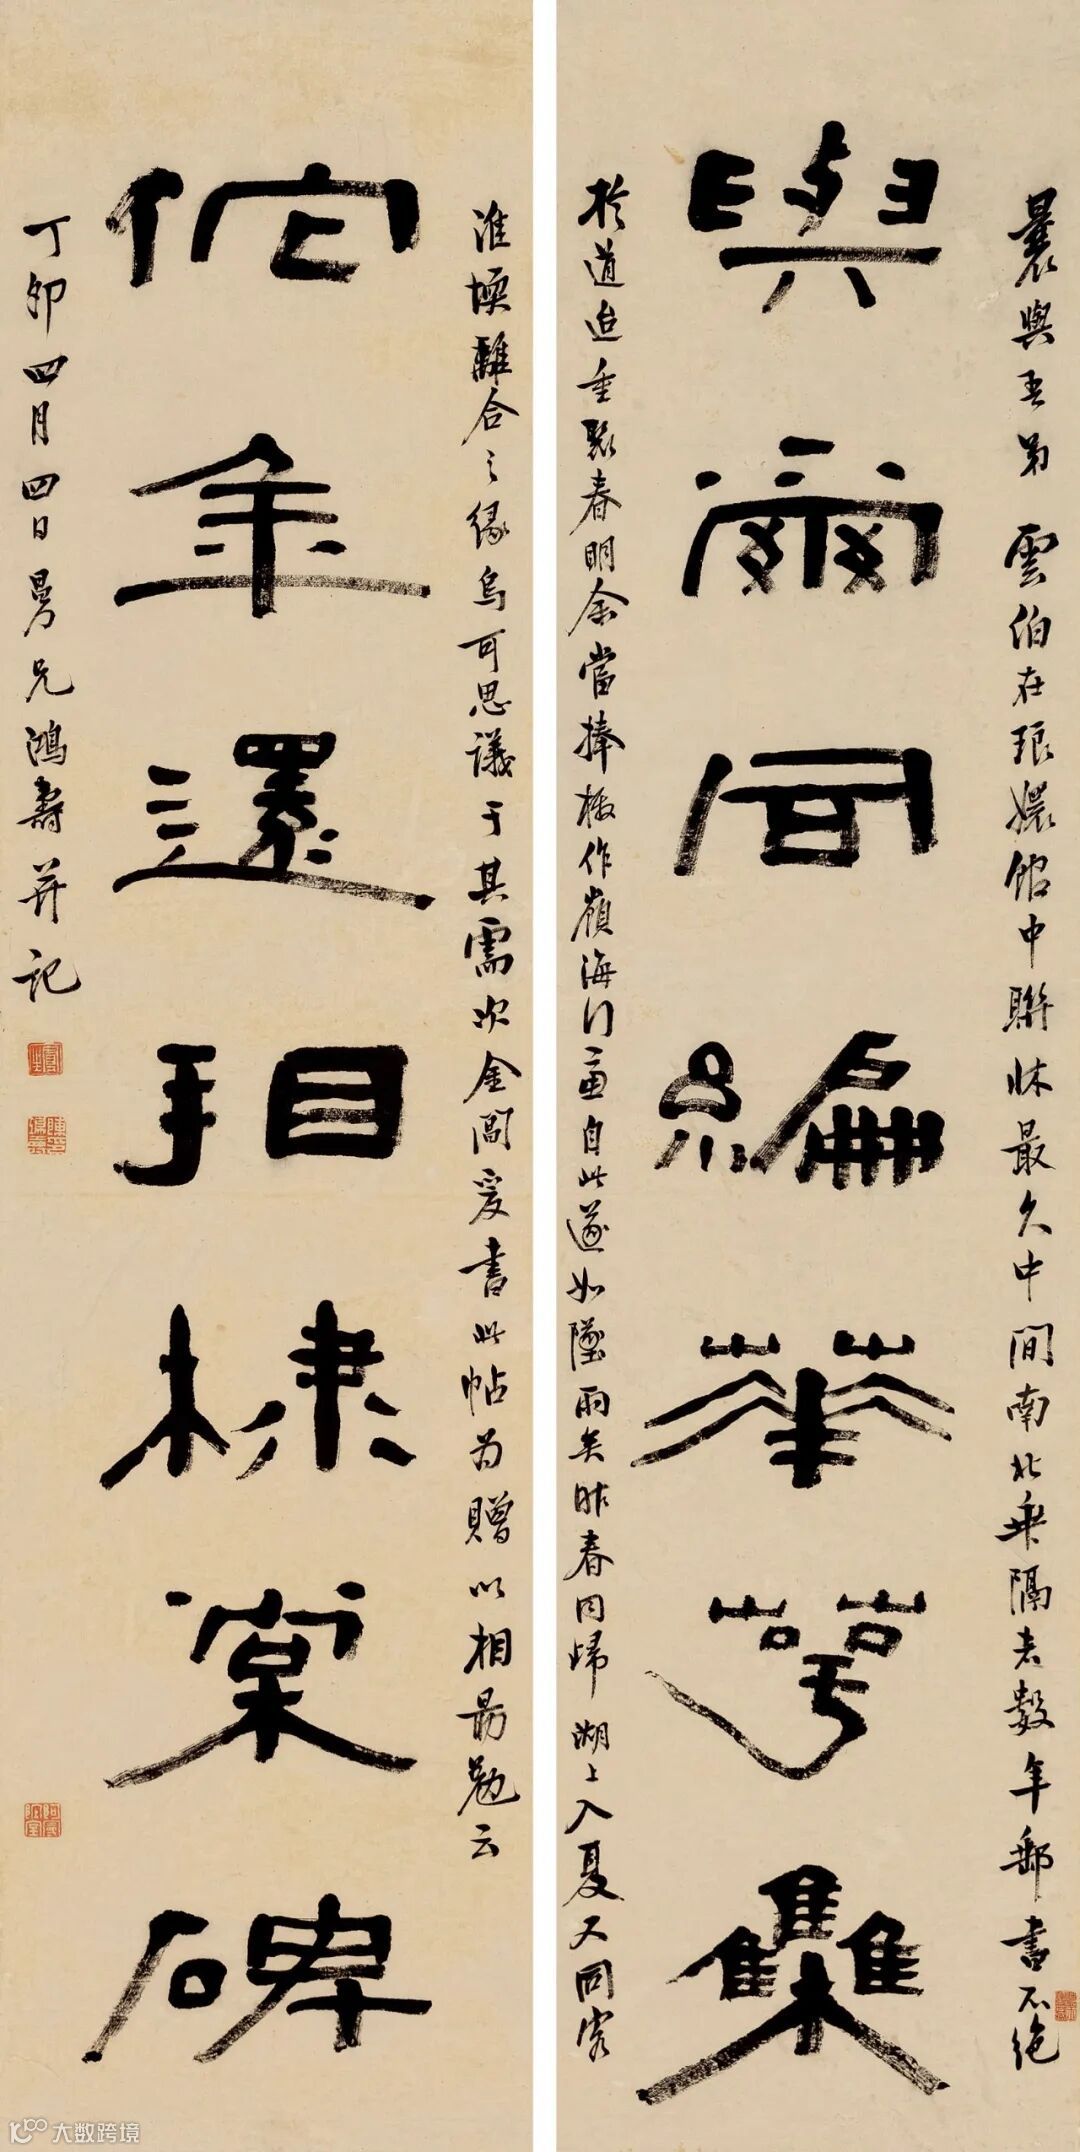 曩與吾弟 雲伯在琅嬛館中聯牀最久中間南北乖隔者數年郵書不絕
與爾同編華萼集
於道迨重聚春明余當捧檄作嶺海行意自此遂如墜雨矣昨春同歸 湖上入夏又同客
淮壖離合之緣烏可思議于其需次金閶爰書此帖為贈以相勗勉云
佗年還相棣棠碑
丁卯四月四日曼兄鴻壽并記
阿曼陀室
大数跨境